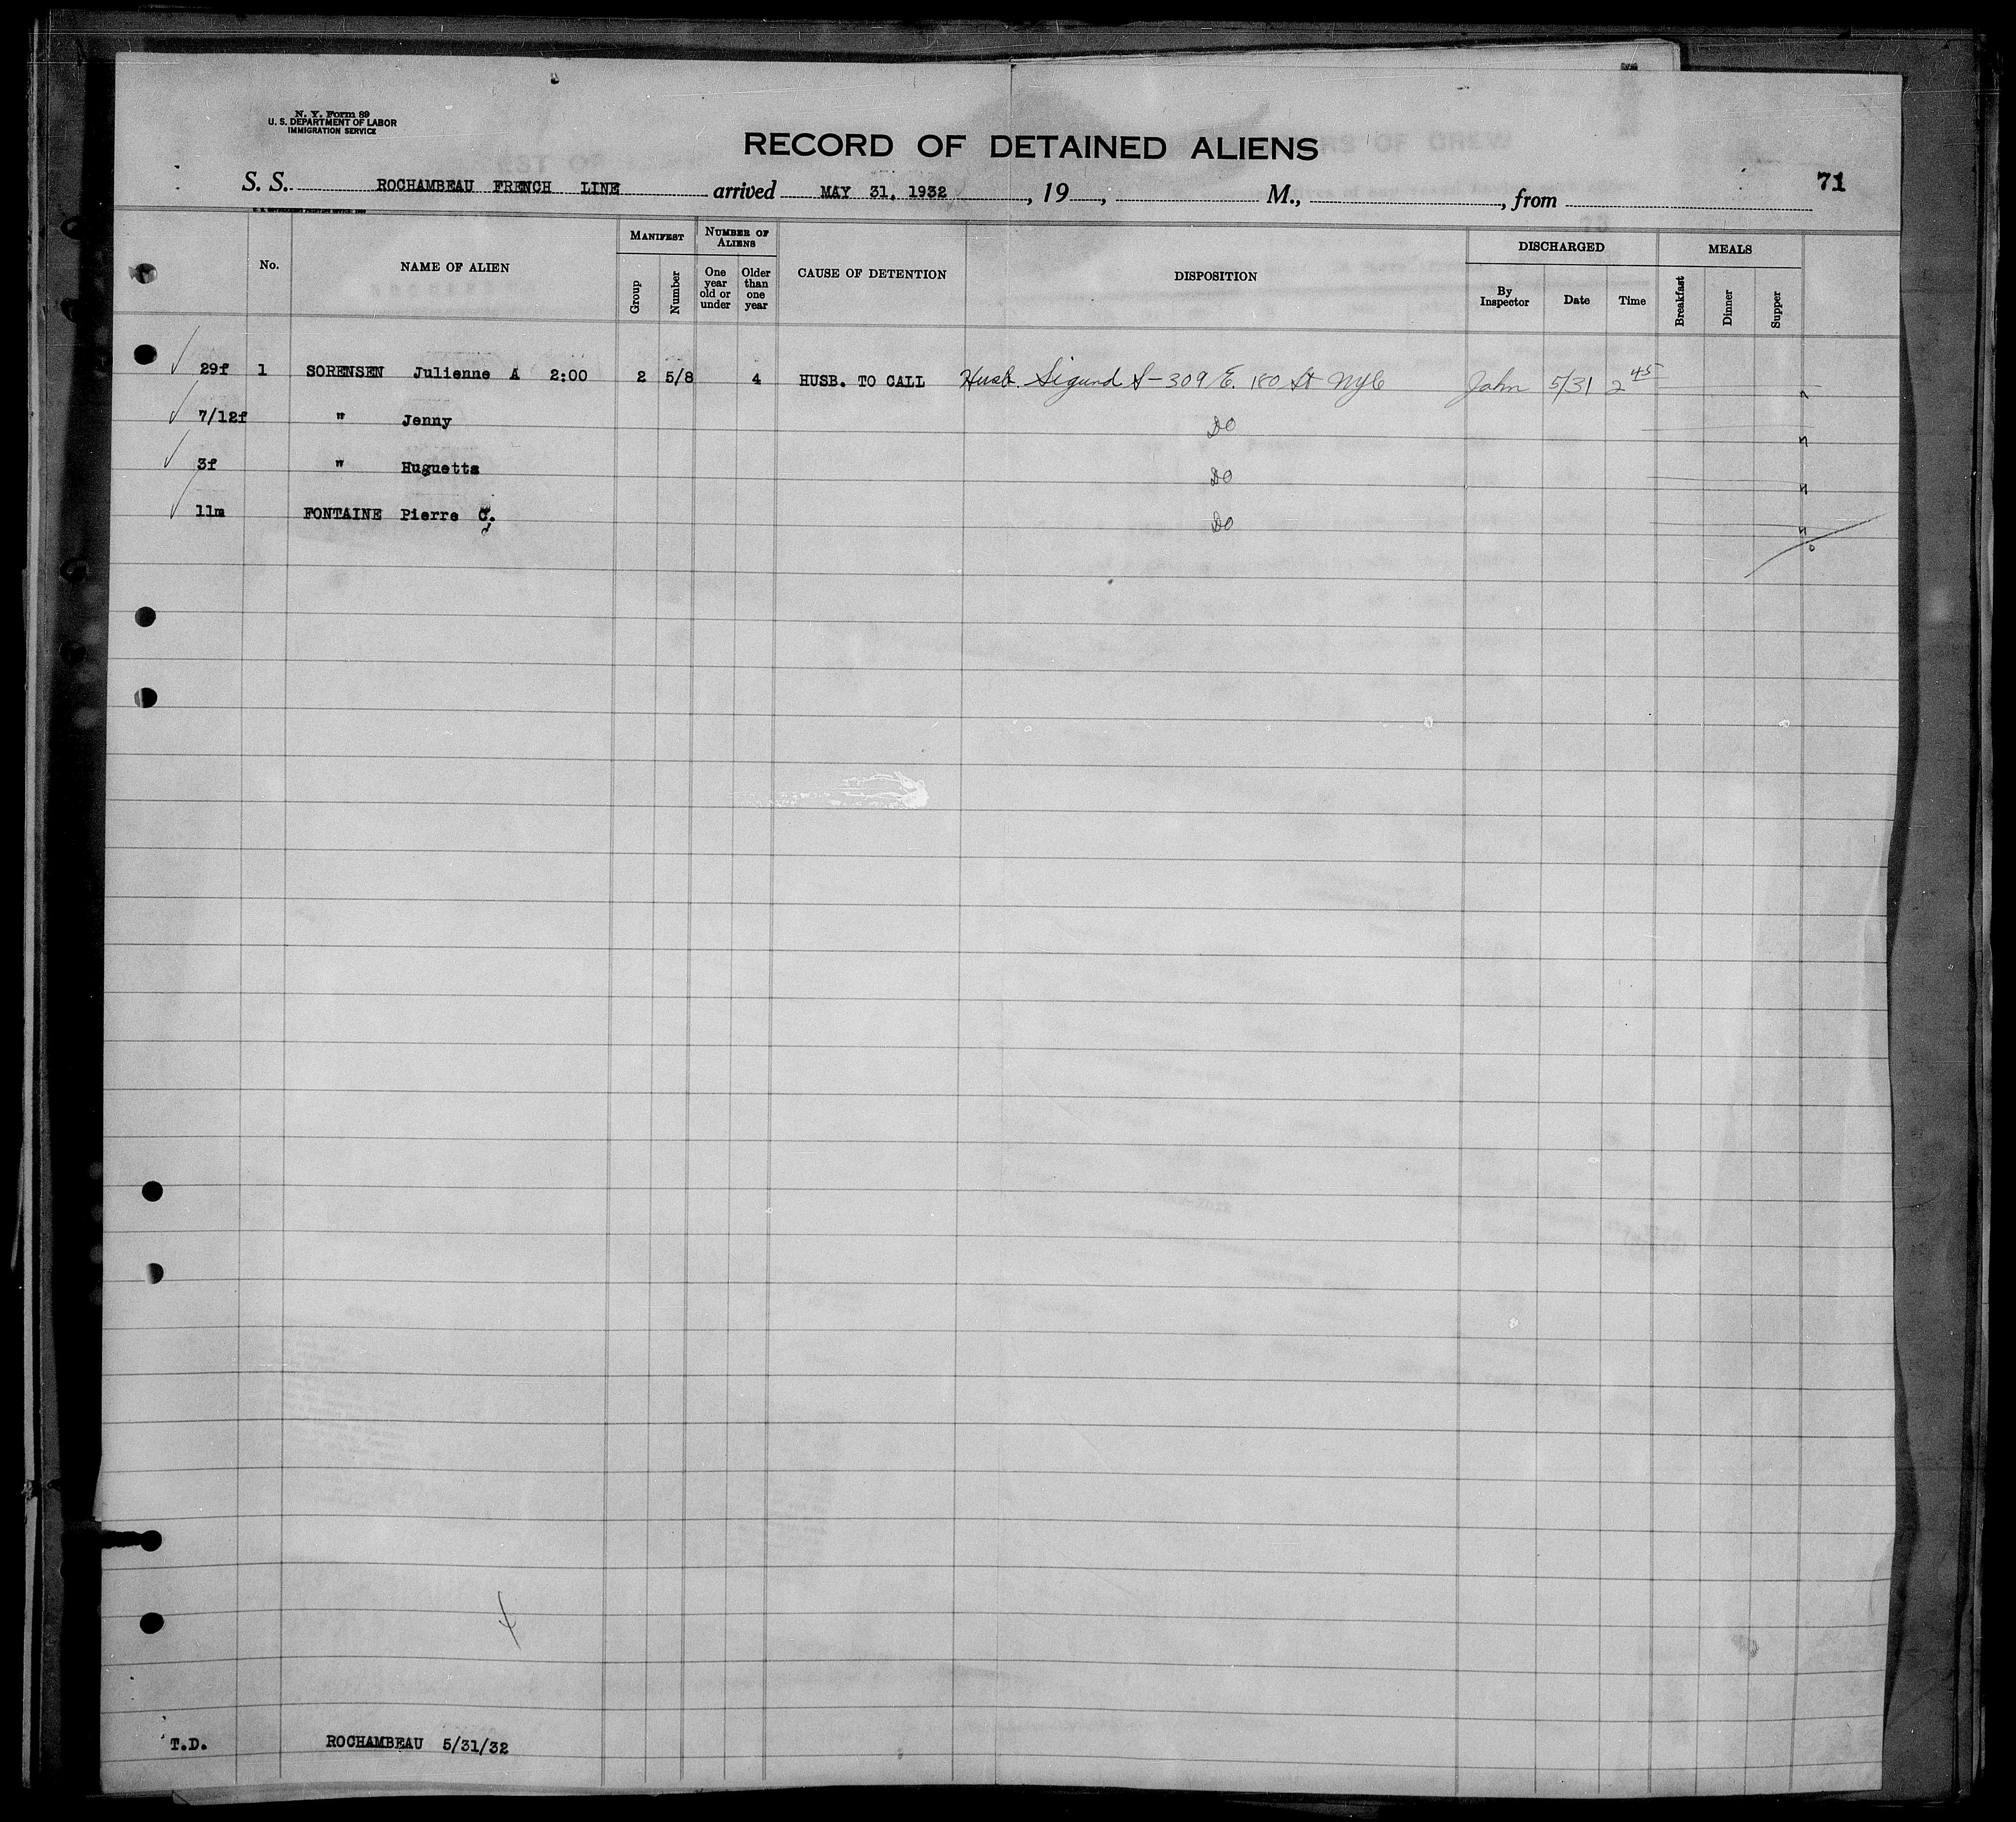 N. Y. Form 89
U. S. DEPARTMENT OF LABOR
IMMIGRATION SERVICE
RECORD OF DETAINED ALIENS
S. S. ROCHAMBEAU FRENCH LINE arrived MAY 31, 1932, 19, M., from 71
MANIFEST NUMBER OF ALIENS DISCHARGED MEALS
No. NAME OF ALIEN Group Number One year old or under Older than one year CAUSE OF DETENTION DISPOSITION By Inspector Date Time Breakfast Dinner Supper
29f 1 SORENSEN Julienne A 2:00 2 5/8 4 HUSB. TO CALL Husb. Sigurd S - 309 E. 180 St NYC John 5/31 2 45
7/12f " Jenny DO
3f " Huguette DO
11m FONTAINE Pierre C. DO
T.D. ROCHAMBEAU 5/31/32